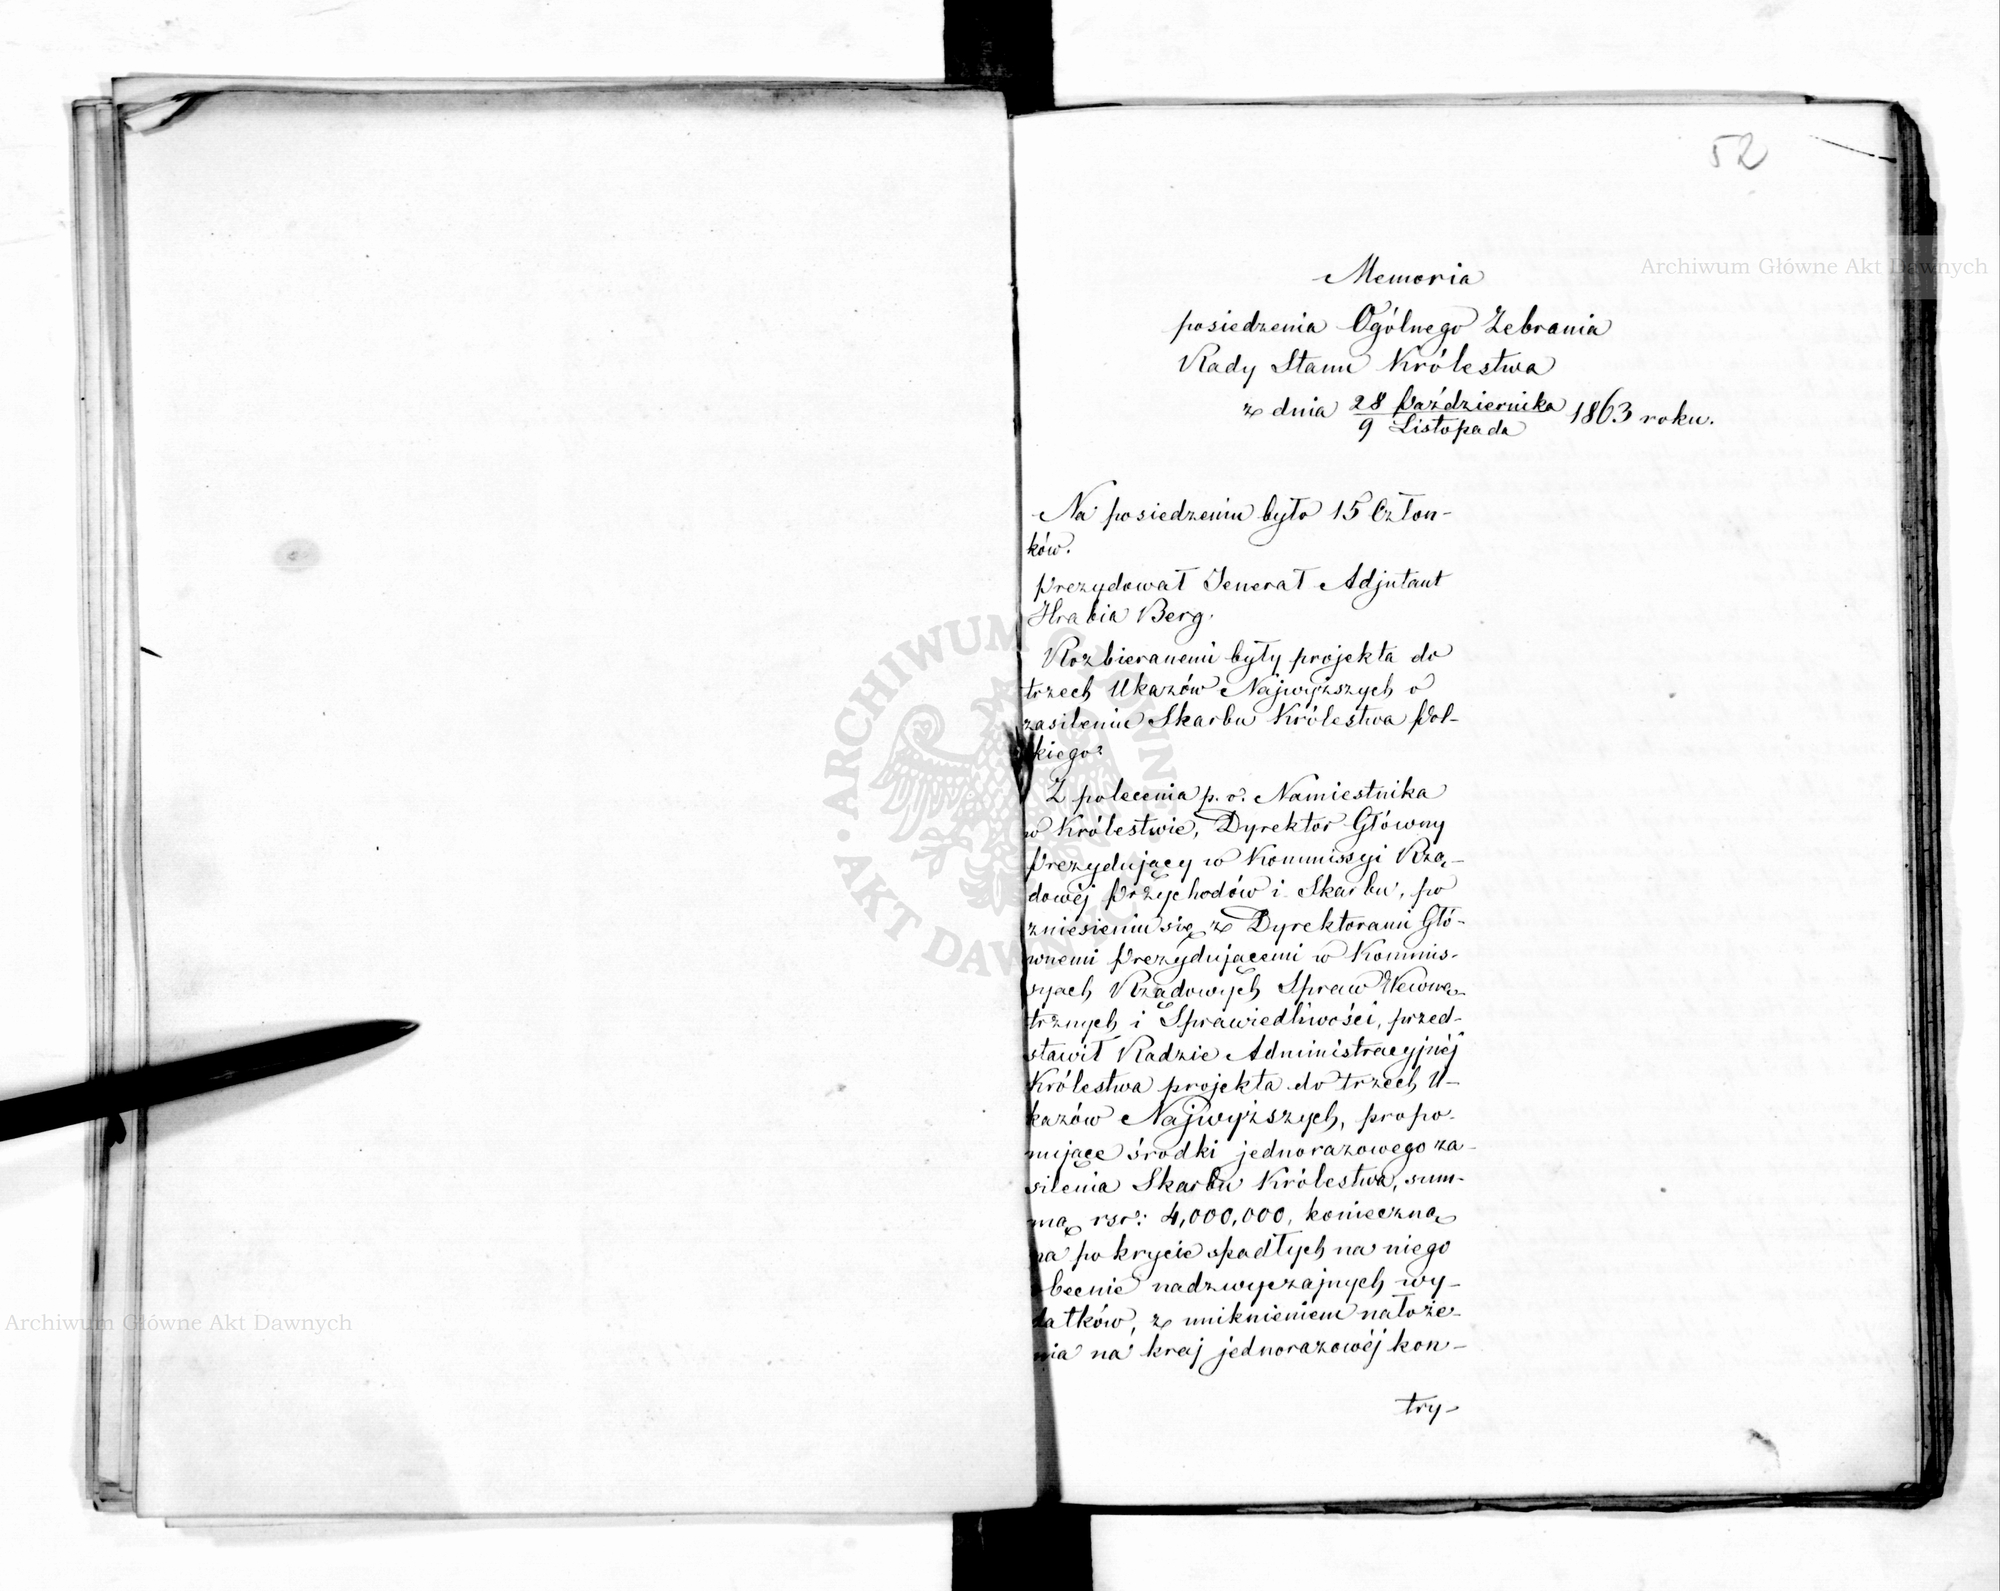 52
Memoria
posiedzenia Ogólnego Zebrania
Rady Stanu Królestwa
z dnia 28 Października 1863 roku.
9 Listopada
Na posiedzeniu było 15 Człon-
ków.
Prezydował Jenerał Adjutant
Hrabia Berg.
Rozbieranemi były projekta do
trzech Ukazów Najwyższych o
zasileniu Skarbu Królestwa Pol-
kiego.
Z polecenia p. o. Namiestnika
w Królestwie, Dyrektor Główny
Prezydujący w Kommissyi Rzą-
dowéj Przychodów i Skarbu, po
zniesieniu się z Dyrektorami Głó-
wnemi Prezydującemi w Kommis-
syach Rządowych Spraw Wewnę-
trznych i Sprawiedliwości, przed-
stawił Radzie Administracyjnéj
Królestwa projekta do trzech U-
kazów Najwyższych, propo-
nujące środki jednorazowego za-
silenia Skarbu Królestwa, sum-
mą rsr: 4,000,000, konieczną
na pokrycie spadłych na niego
obecnie nadzwyczajnych wy-
datków, z uniknieniem nałoże-
nia na kraj jednorazowéj kon-
try-
Archiwum Główne Akt Dawnych
Archiwum Główne Akt Dawnych
ARCHIWUM GŁÓWNE AKT DAWNYCH